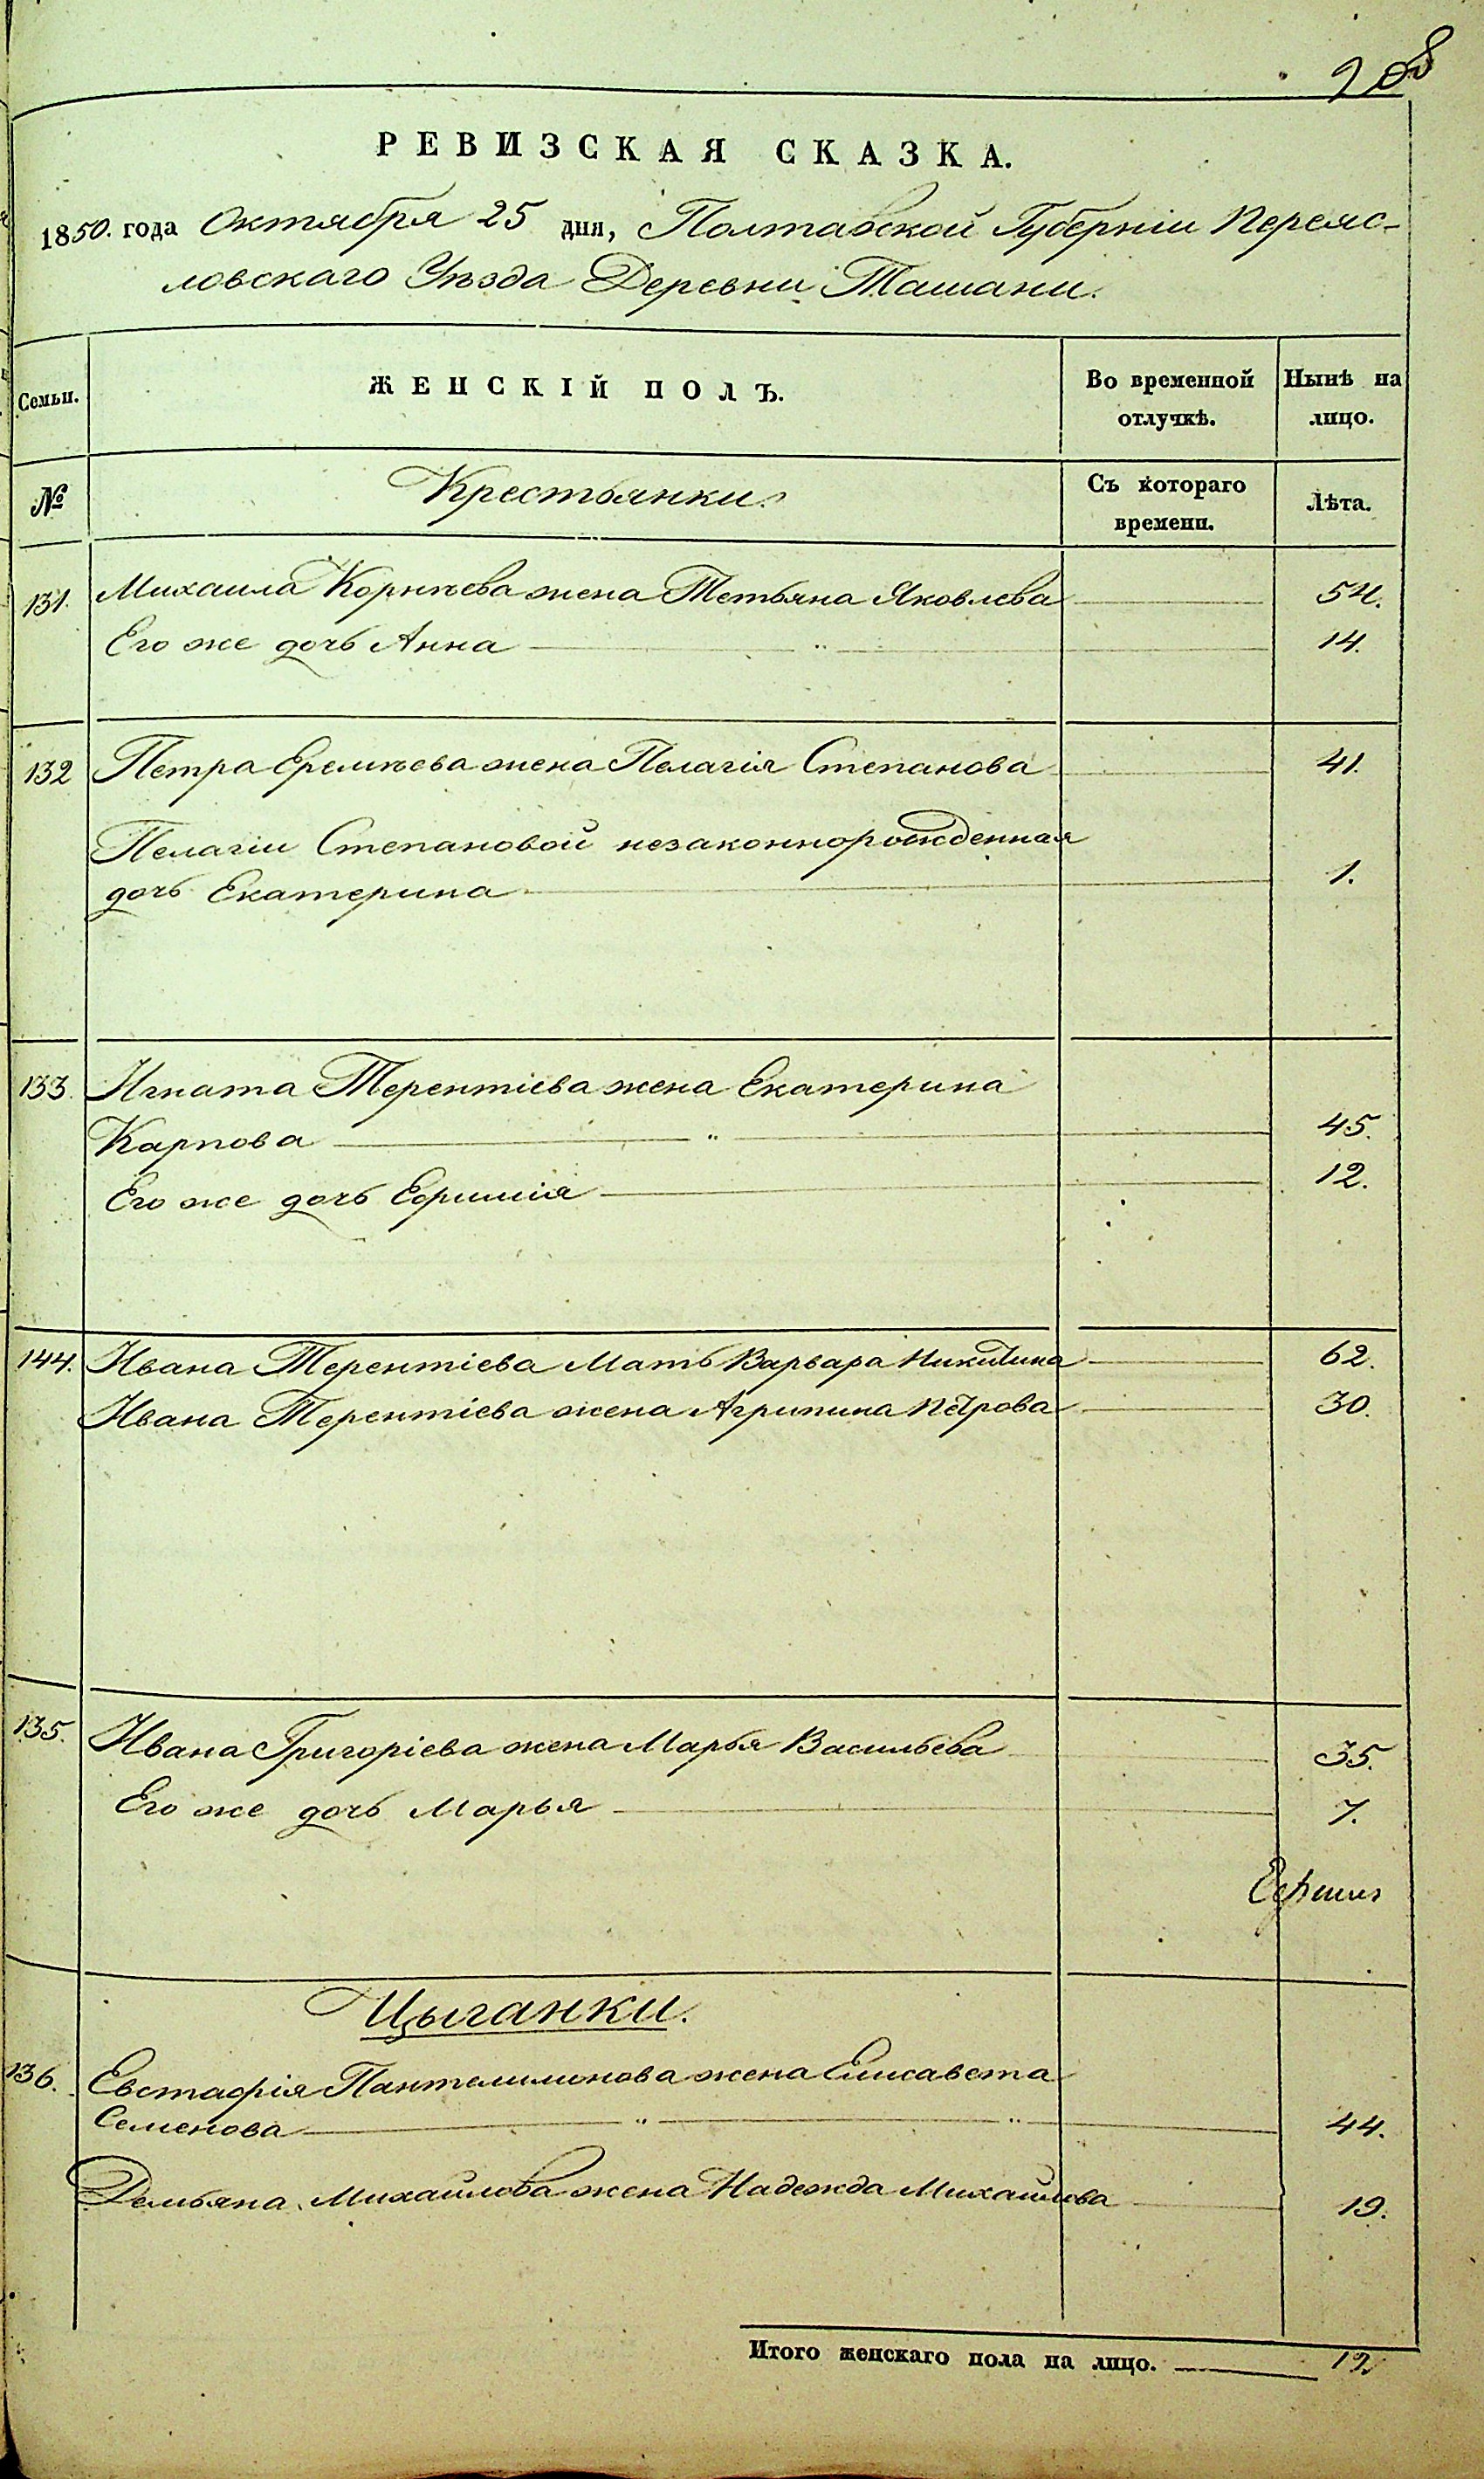 208
РЕВИЗСКАЯ СКАЗКА.
1850. года Октября 25 дня, Полтавской Губерніи Переяс-
ловскаго Уѣзда Деревни Ташани.
Семьи. ЖЕНСКІЙ ПОЛЪ. Во временной отлучкѣ. Нынѣ на лицо.
№ Крестьянки. Съ котораго времени. Лѣта.
131. Михаила Корнѣева жена Тетьяна Яковлева 54.
Его же дочь Анна " 14.
132 Петра Еремѣева жена Пелагія Степанова 41.
Пелагіи Степановой незаконнорожденная
дочь Екатерина 1.
133. Игната Терентіева жена Екатерина
Карпова " 45.
Его же дочь Ефимія 12.
144. Ивана Терентіева Мать Варвара Никитина 62.
Ивана Терентіева жена Агрипина Петрова 30.
135. Ивана Григоріева жена Марья Васильева 35.
Его же дочь Марья 7.
Цыганки.
136. Евстафія Пантелимонова жена Елисавета
Семенова " " 44.
Демьяна Михайлова жена Надежда Михайлова 19.
Итого женскаго пола на лицо. 12